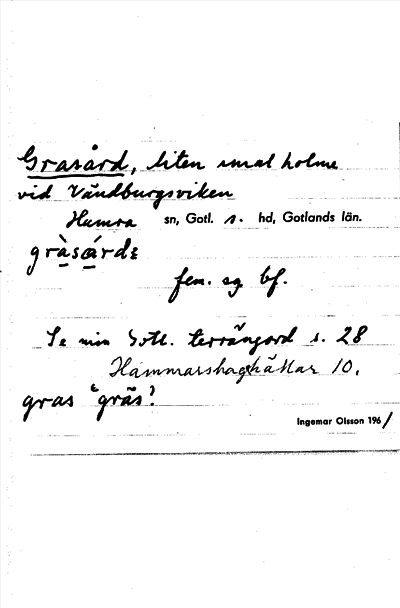 Grasård, liten smal holme
vid Vändburgsviken
Hamra sn, Gotl. s. hd, Gotlands län.
gràsárdɛ
fem. sg. bf.
Se min Gotl. terrängord s. 28
Hammarshagehällar 10.
gras 'gräs'.
Ingemar Olsson 1961